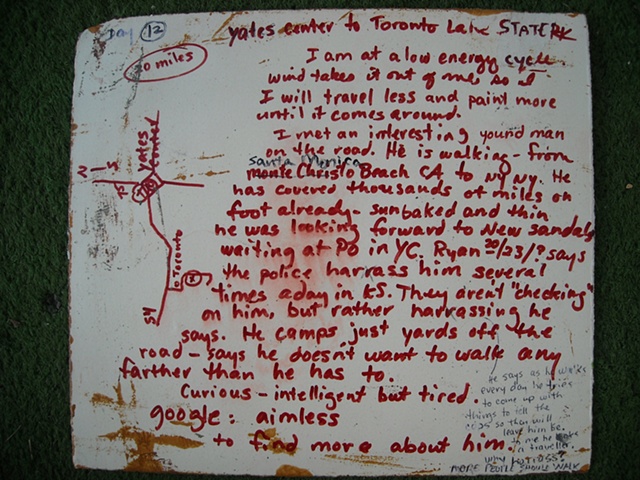 Day 12
yates center to Toronto Lake STATE PK
20 miles
I am at a low energy cycle
wind takes it out of me so I
I will travel less and paint more
until it comes around.
I met an interesting young man
on the road. He is walking - from
Santa Monica
monte Christo Beach CA to NY NY. He
has covered thousands of miles on
foot already - sunbaked and thin
he was looking forward to New sandels
waiting at PO in YC. Ryan 20/23/? says
the police harrass him several
times a day in KS. They aren't "checking"
on him, but rather harrassing he
says. He camps just yards off the
road - says he doesn't want to walk any
farther than he has to.
Curious - intelligent but tired.
google: aimless
to find more about him.
Yates Center
75
54
Toronto
He says as he walks
every day he tries
to come up with
things to tell the
so they will
leave him be.
to me he
a traveller.
why
MORE PEOPLE SHOULD WALK